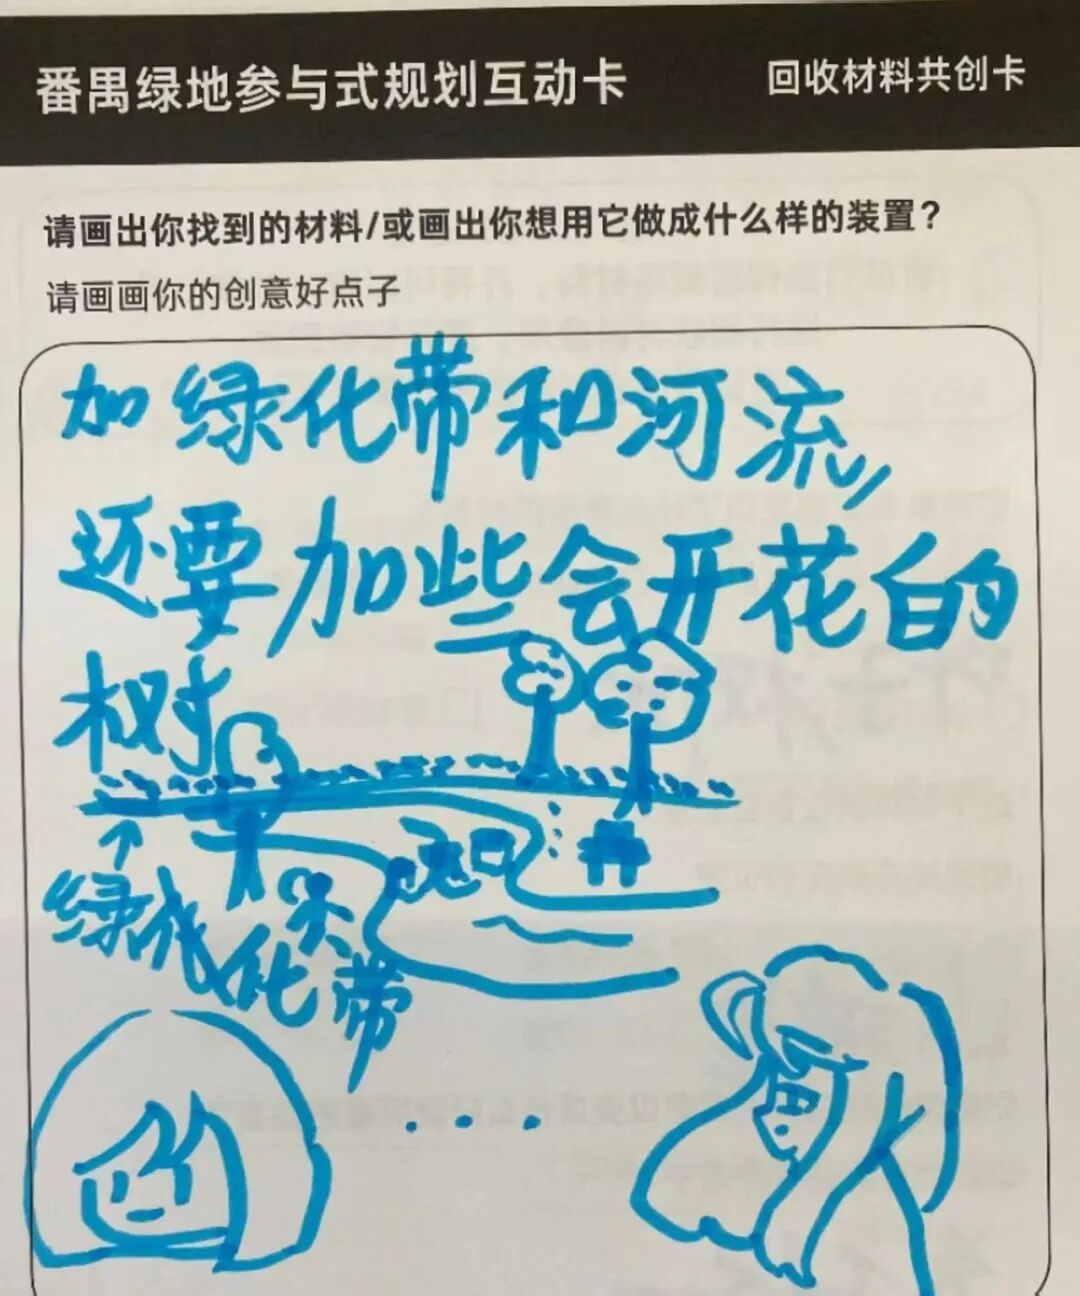 番禺绿地参与式规划互动卡 回收材料共创卡
请画出你找到的材料/或画出你想用它做成什么样的装置？
请画画你的创意好点子
加绿化带和河流，
还要加些会开花的
树
绿化带